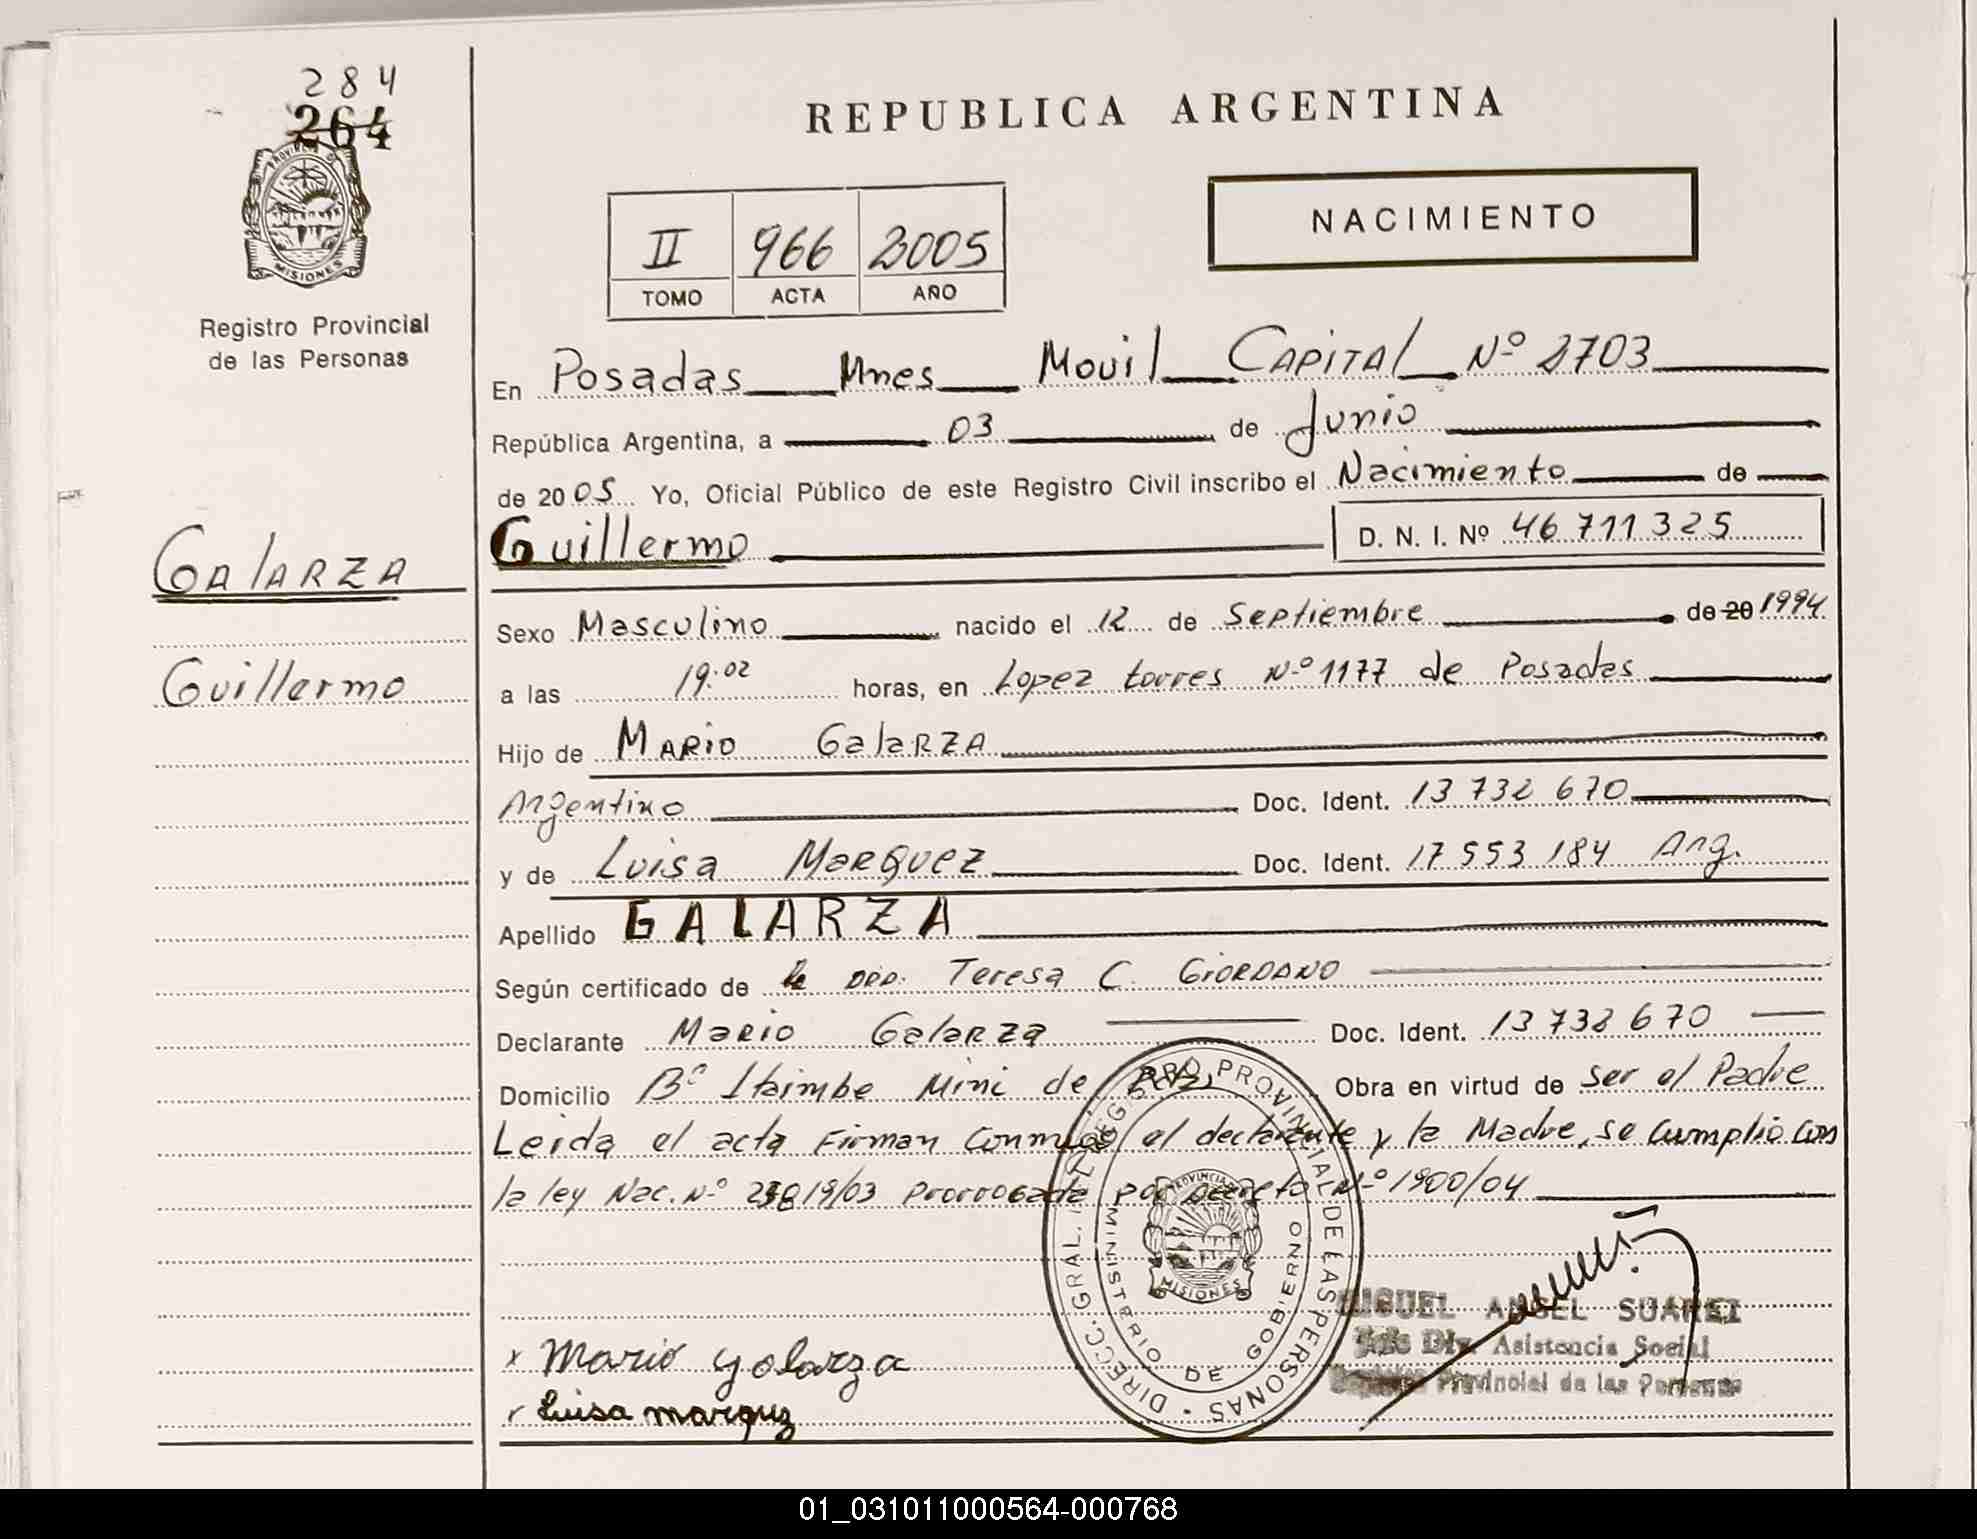 284
264
REPUBLICA ARGENTINA
PROVINCIA D
MISIONES
Registro Provincial
de las Personas
II 966 2005
TOMO ACTA AÑO
NACIMIENTO
En Posadas Mnes Movil CAPITAl Nº 2703
República Argentina, a 03 de Junio
de 2005 Yo, Oficial Público de este Registro Civil inscribo el Nacimiento de
Guillermo D. N. I. Nº 46 711 325
GAlARZA
Guillermo
Sexo Masculino nacido el 12 de Septiembre de 20 1994
a las 19:02 horas, en Lopez torres Nº 1177 de Posadas
Hijo de MARiO GalaRZA
Argentino Doc. Ident. 13 732 670
y de Luisa MaRQuez Doc. Ident. 17 553 184 Arg.
Apellido GALARZA
Según certificado de la Teresa C. GiORDANO
Declarante Mario Galarza Doc. Ident. 13 732 670
Domicilio Bº Itaimbe Mini de Obra en virtud de ser el Padre
Leida el acta Firman Conmigo el declarante y la Madre, se Cumplio con
la ley Nac. Nº 25819/03 Prorrogada por Decreto Nº 1900/04
DIRECC. GRAL. DEL REGISTRO PROVINCIAL DE LAS PERSONAS
MINISTERIO DE GOBIERNO
PROVINCIA
MISIONES
x Mario galarza
Luisa marquz
MIGUEL ANGEL SUAREZ
Jefe Div. Asistencia Social
Provincial de las Personas
01_031011000564-000768